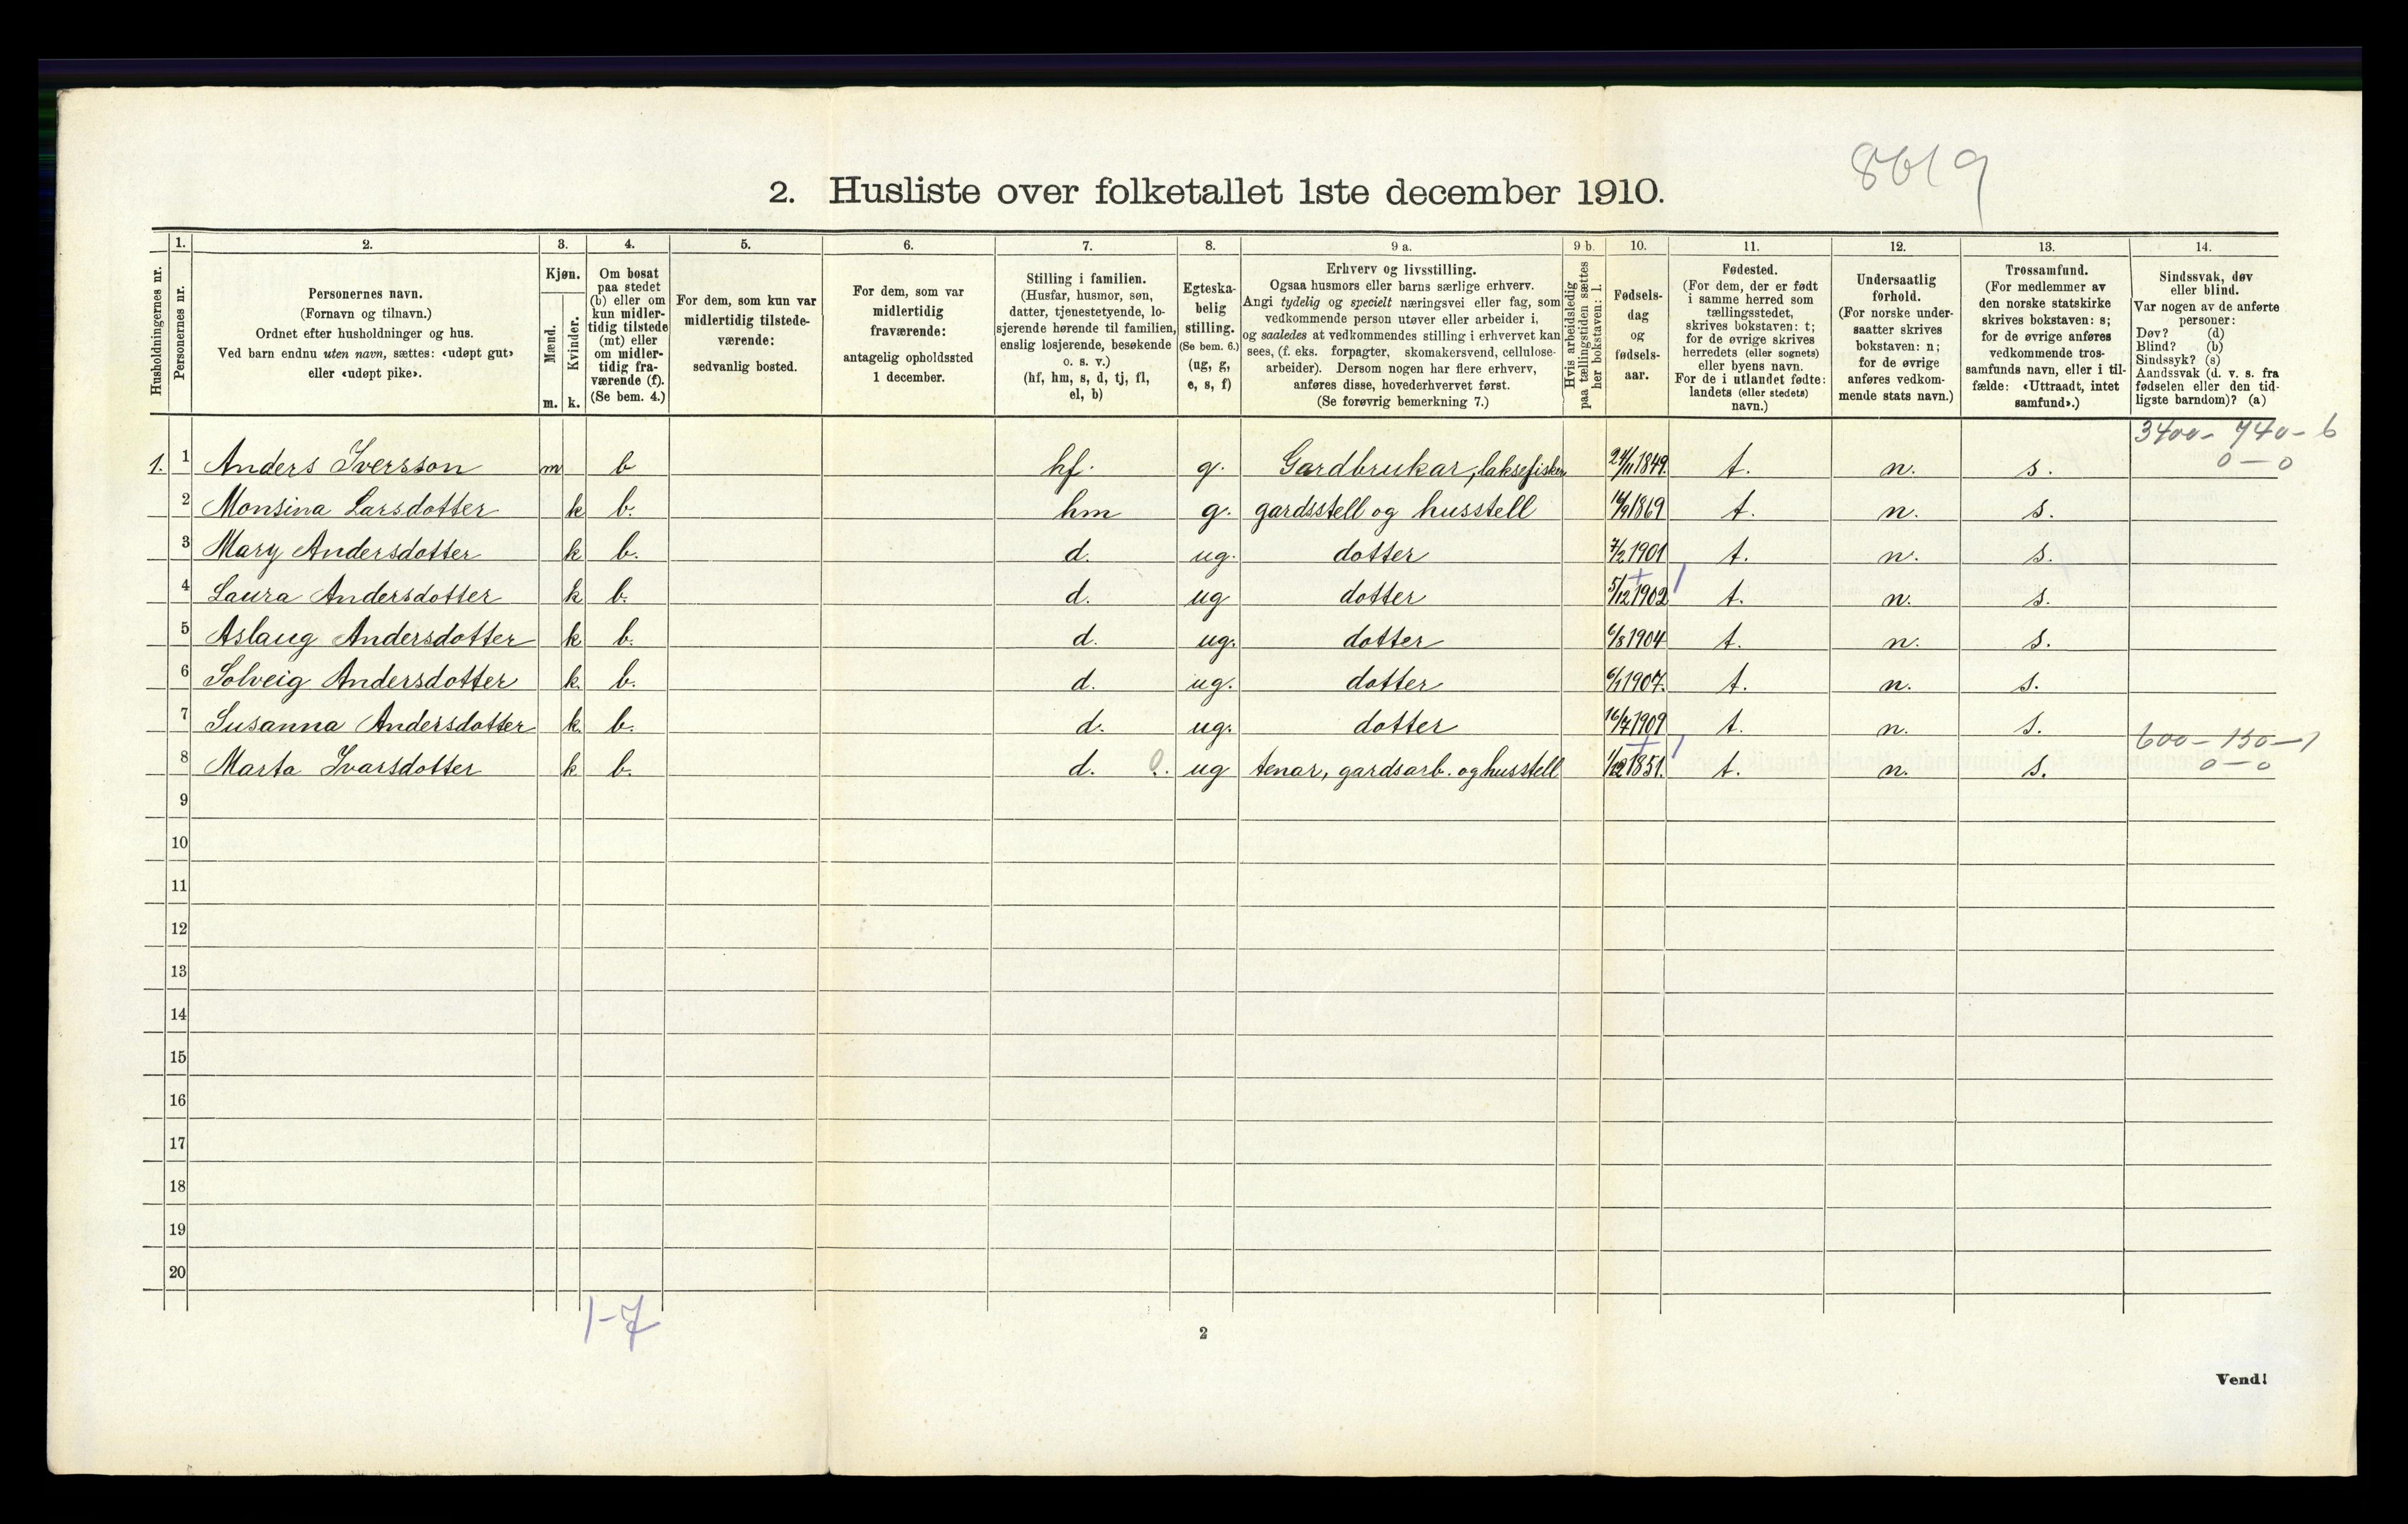 8619
2. Husliste over folketallet 1ste december 1910.
Husholdningernes nr.
1.
Personernes nr.
2.
Personernes navn.
(Fornavn og tilnavn.)
Ordnet efter husholdninger og hus.
Ved barn endnu uten navn, sættes: «udøpt gut»
eller «udøpt pike».
3.
Kjøn.
Mænd.
Kvinder.
m. k.
4.
Om bosat
paa stedet
(b) eller om
kun midler-
tidig tilstede
(mt) eller
om midler-
tidig fra-
værende (f).
(Se bem. 4.)
5.
For dem, som kun var
midlertidig tilstede-
værende:
sedvanlig bosted.
6.
For dem, som var
midlertidig
fraværende:
antagelig opholdssted
1 december.
7.
Stilling i familien.
(Husfar, husmor, søn,
datter, tjenestetyende, lo-
sjerende hørende til familien,
enslig losjerende, besøkende
o. s. v.)
(hf, hm, s, d, tj, fl,
el, b)
8.
Egteska-
belig
stilling.
(Se bem. 6.)
(ug, g,
e, s, f)
9 a.
Erhverv og livsstilling.
Ogsaa husmors eller barns særlige erhverv.
Angi tydelig og specielt næringsvei eller fag, som
vedkommende person utøver eller arbeider i,
og saaledes at vedkommendes stilling i erhvervet kan
sees, (f. eks. forpagter, skomakersvend, cellulose-
arbeider). Dersom nogen har flere erhverv,
anføres disse, hovederhvervet først.
(Se forøvrig bemerkning 7.)
9 b.
Hvis arbeidsledig
paa tællingstiden sættes
her bokstaven: l.
10.
Fødsels-
dag
og
fødsels-
aar.
11.
Fødested.
(For dem, der er født
i samme herred som
tællingsstedet,
skrives bokstaven: t;
for de øvrige skrives
herredets (eller sognets)
eller byens navn.
For de i utlandet fødte:
landets (eller stedets)
navn.)
12.
Undersaatlig
forhold.
(For norske under-
saatter skrives
bokstaven: n;
for de øvrige
anføres vedkom-
mende stats navn.)
13.
Trossamfund.
(For medlemmer av
den norske statskirke
skrives bokstaven: s;
for de øvrige anføres
vedkommende tros-
samfunds navn, eller i til-
fælde: «Uttraadt, intet
samfund».)
14.
Sindssvak, døv
eller blind.
Var nogen av de anførte
personer:
Døv? (d)
Blind? (b)
Sindssyk? (s)
Aandssvak (d. v. s. fra
fødselen eller den tid-
ligste barndom)? (a)
3400 - 740 - 6
0 - 0
1. 1 Anders Iversson m b hf. g. Gardbrukar, laksefisker 24/11 1849. t. n. s.
2 Monsina Larsdotter k b. hm g. gardsstell og husstell 16/9 1869 t. n. s.
3 Mary Andersdotter k b. d. ug. dotter 7/2 1901 t. n. s.
4 Laura Andersdotter k b. d. ug dotter 5/12 1902 t. n. s.
5 Aslaug Andersdotter k b. d. ug. dotter 6/8 1904 t. n. s.
6 Solveig Andersdotter k. b. d. ug. dotter 6/1 1907. t. n. s.
7 Susanna Andersdotter k. b. d. ug. dotter 16/7 1909 t. n. s.
600 - 150 - 1
0 - 0
8 Marta Ivarsdotter k b. d. ug tenar, gardsarb. og husstell 1/12 1851. t. n. s.
9
10
11
12
13
14
15
16
17
18
19
20
1-7
2
Vend!